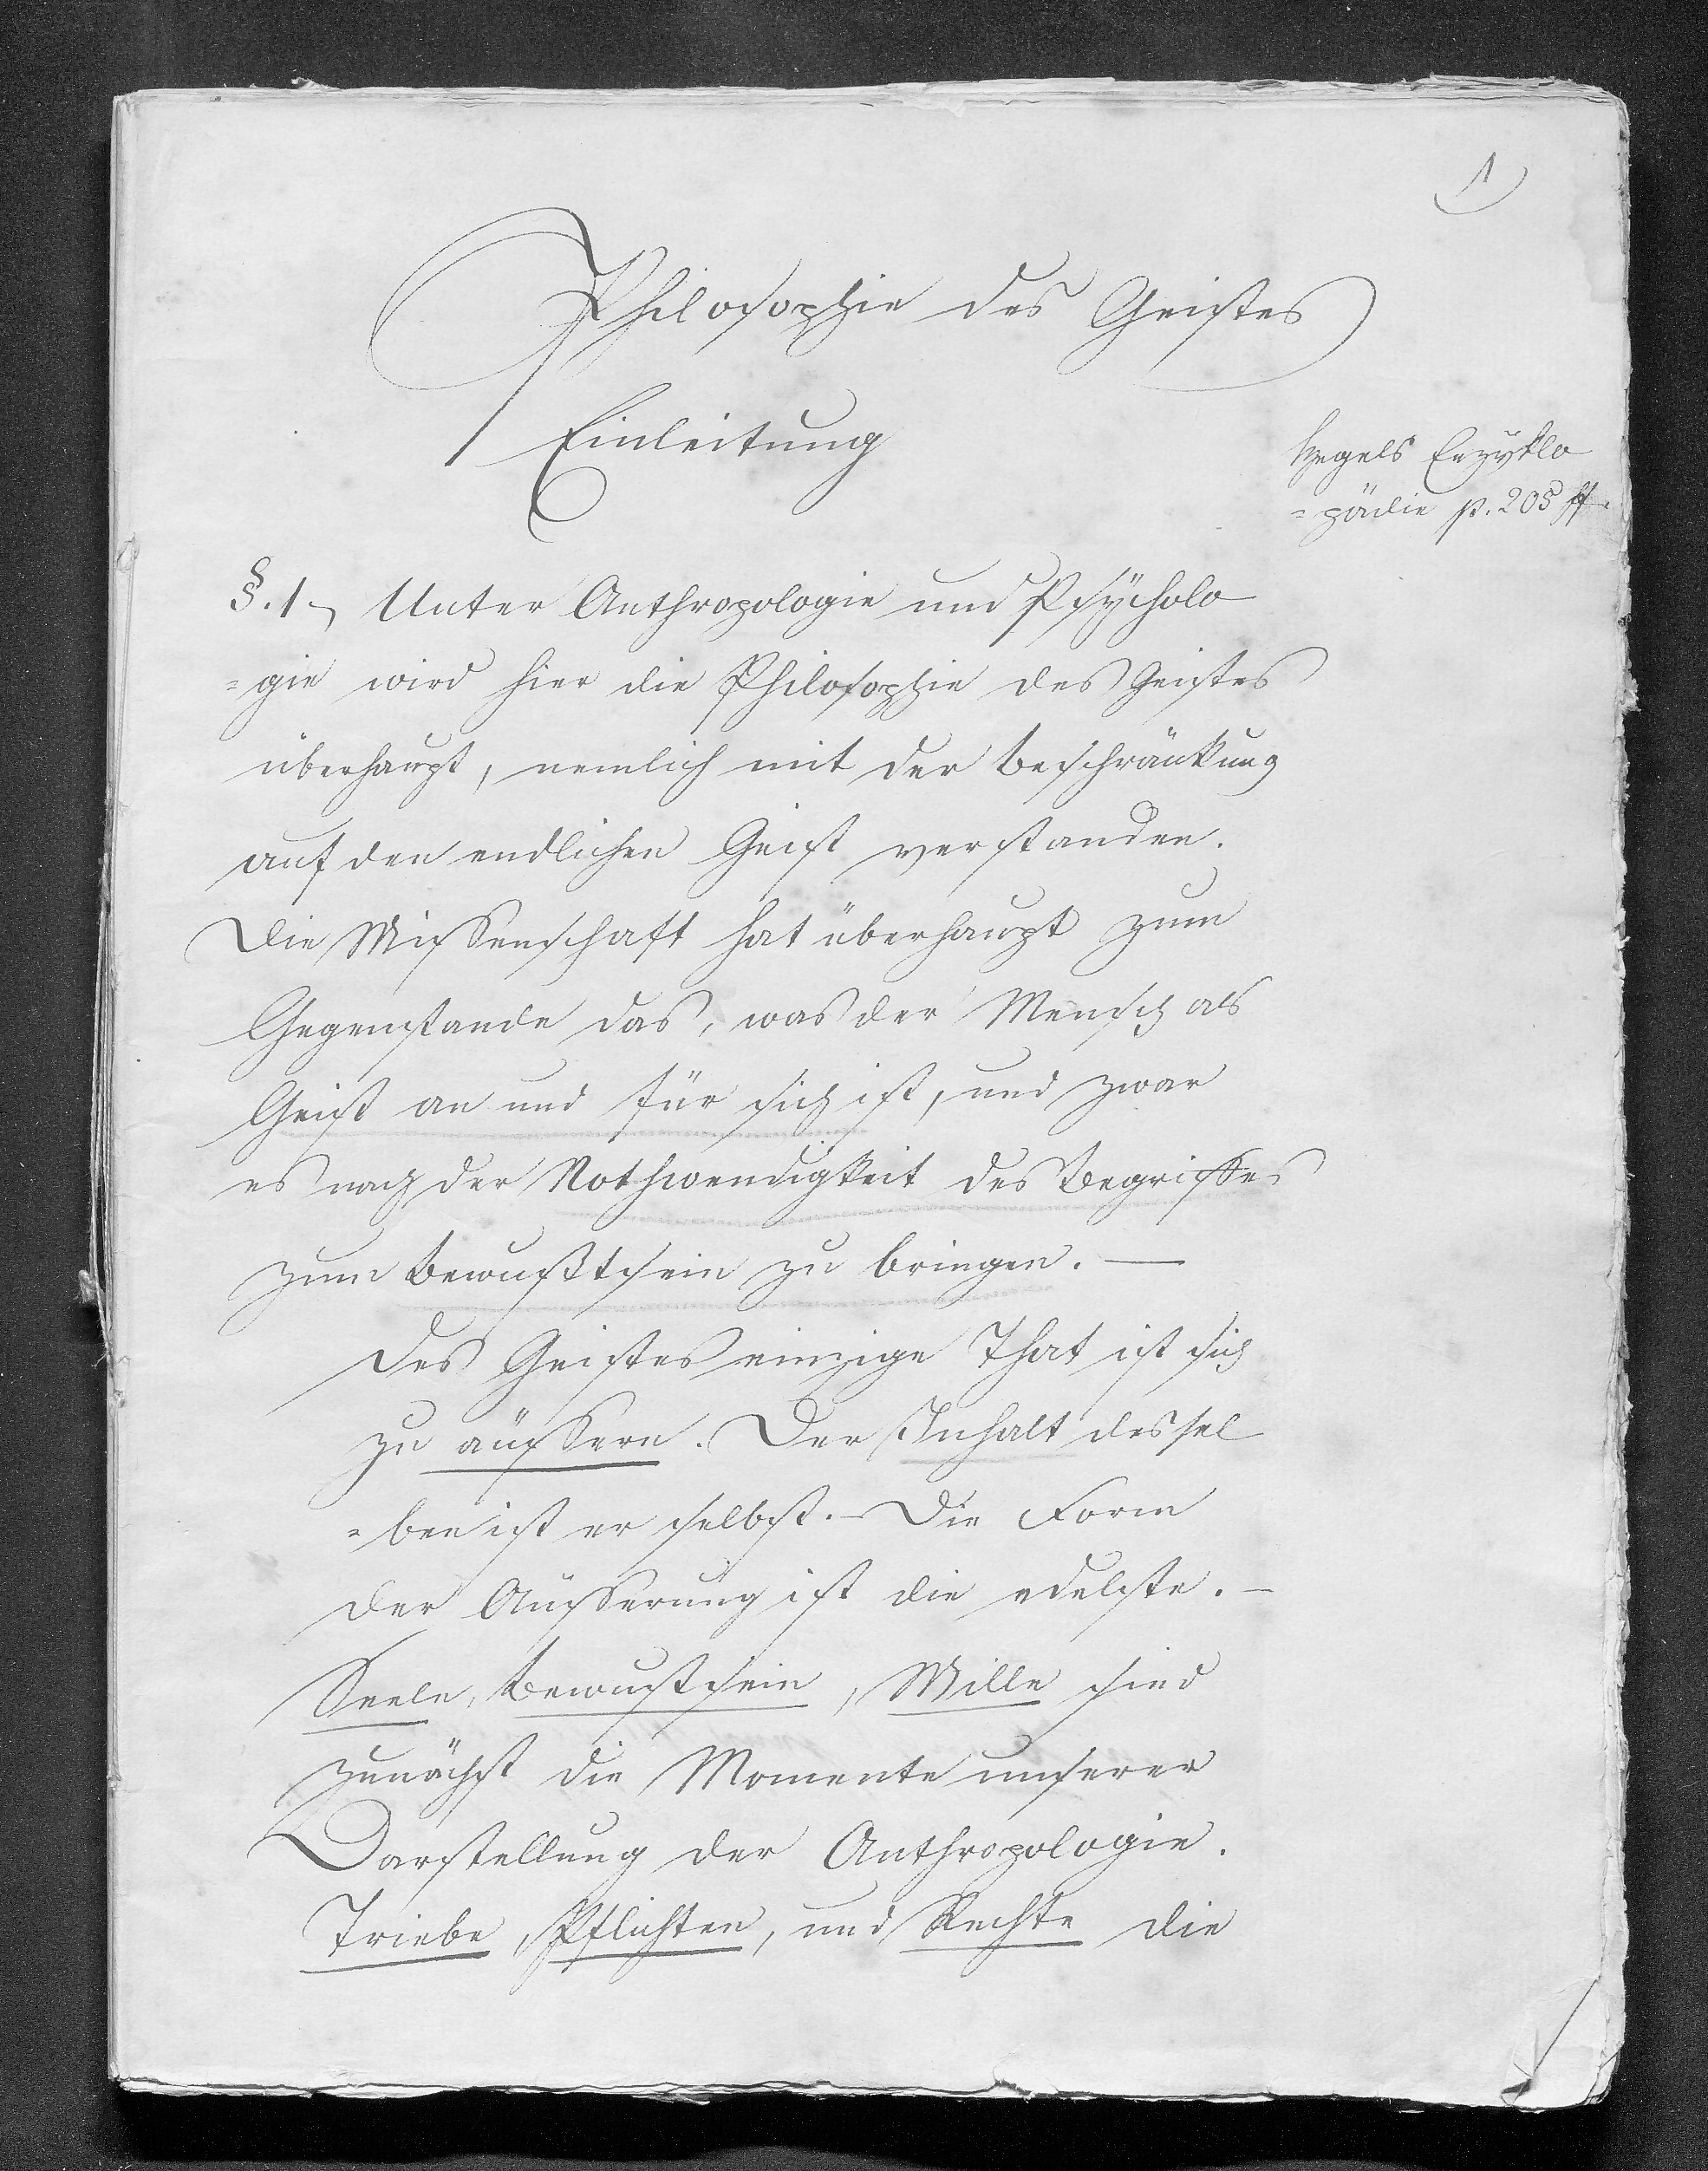 1
Philosophie des Geistes
Einleitung
Hegels Enzyklo
=pädie p. 205 ff.
§. 1. Unter Anthropologie und Psÿcholo
=gie wird hier die Philosophie des Geistes
überhaupt, nemlich mit der Beschränkung
auf den endlichen Geist verstanden.
Die Wissenschaft hat überhaupt zum
Gegenstande das, was der Mensch als
Geist an und für sich ist, und zwar
es nach der Nothwendigkeit des Begriffes
zum Bewußtsein zu bringen. —
Des Geistes einzige That ist sich
zu äussern. Der Inhalt dessel
=ben ist er selbst. – Die Form
der Äusserung ist die edelste. –
Seele, Bewustsein, Wille sind
zunächst die Momente unserer
Darstellung der Anthropologie.
Triebe, Pflichten, und Rechte die